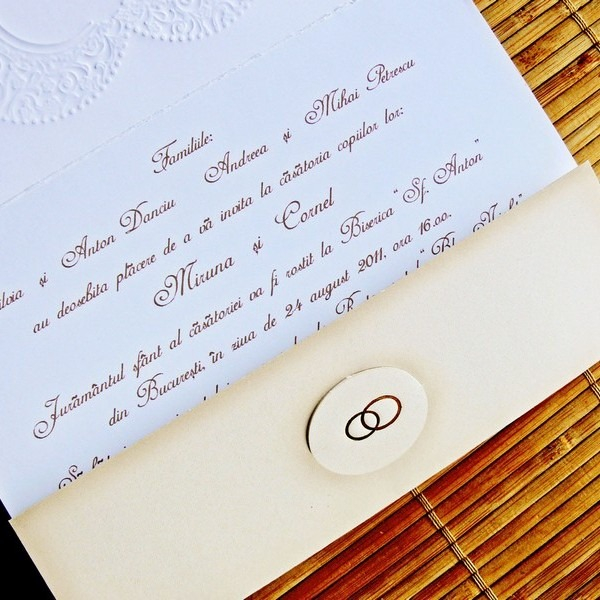 Familiile:
și Anton Danciu Andreea și Mihai Petrescu
au deosebita plăcere de a vă invita la căsătoria copiilor lor:
Miruna și Cornel
Jurământul sfânt al căsătoriei va fi rostit la Biserica "Sf. Anton"
din București, în ziua de 24 august 2011, ora 16.00.